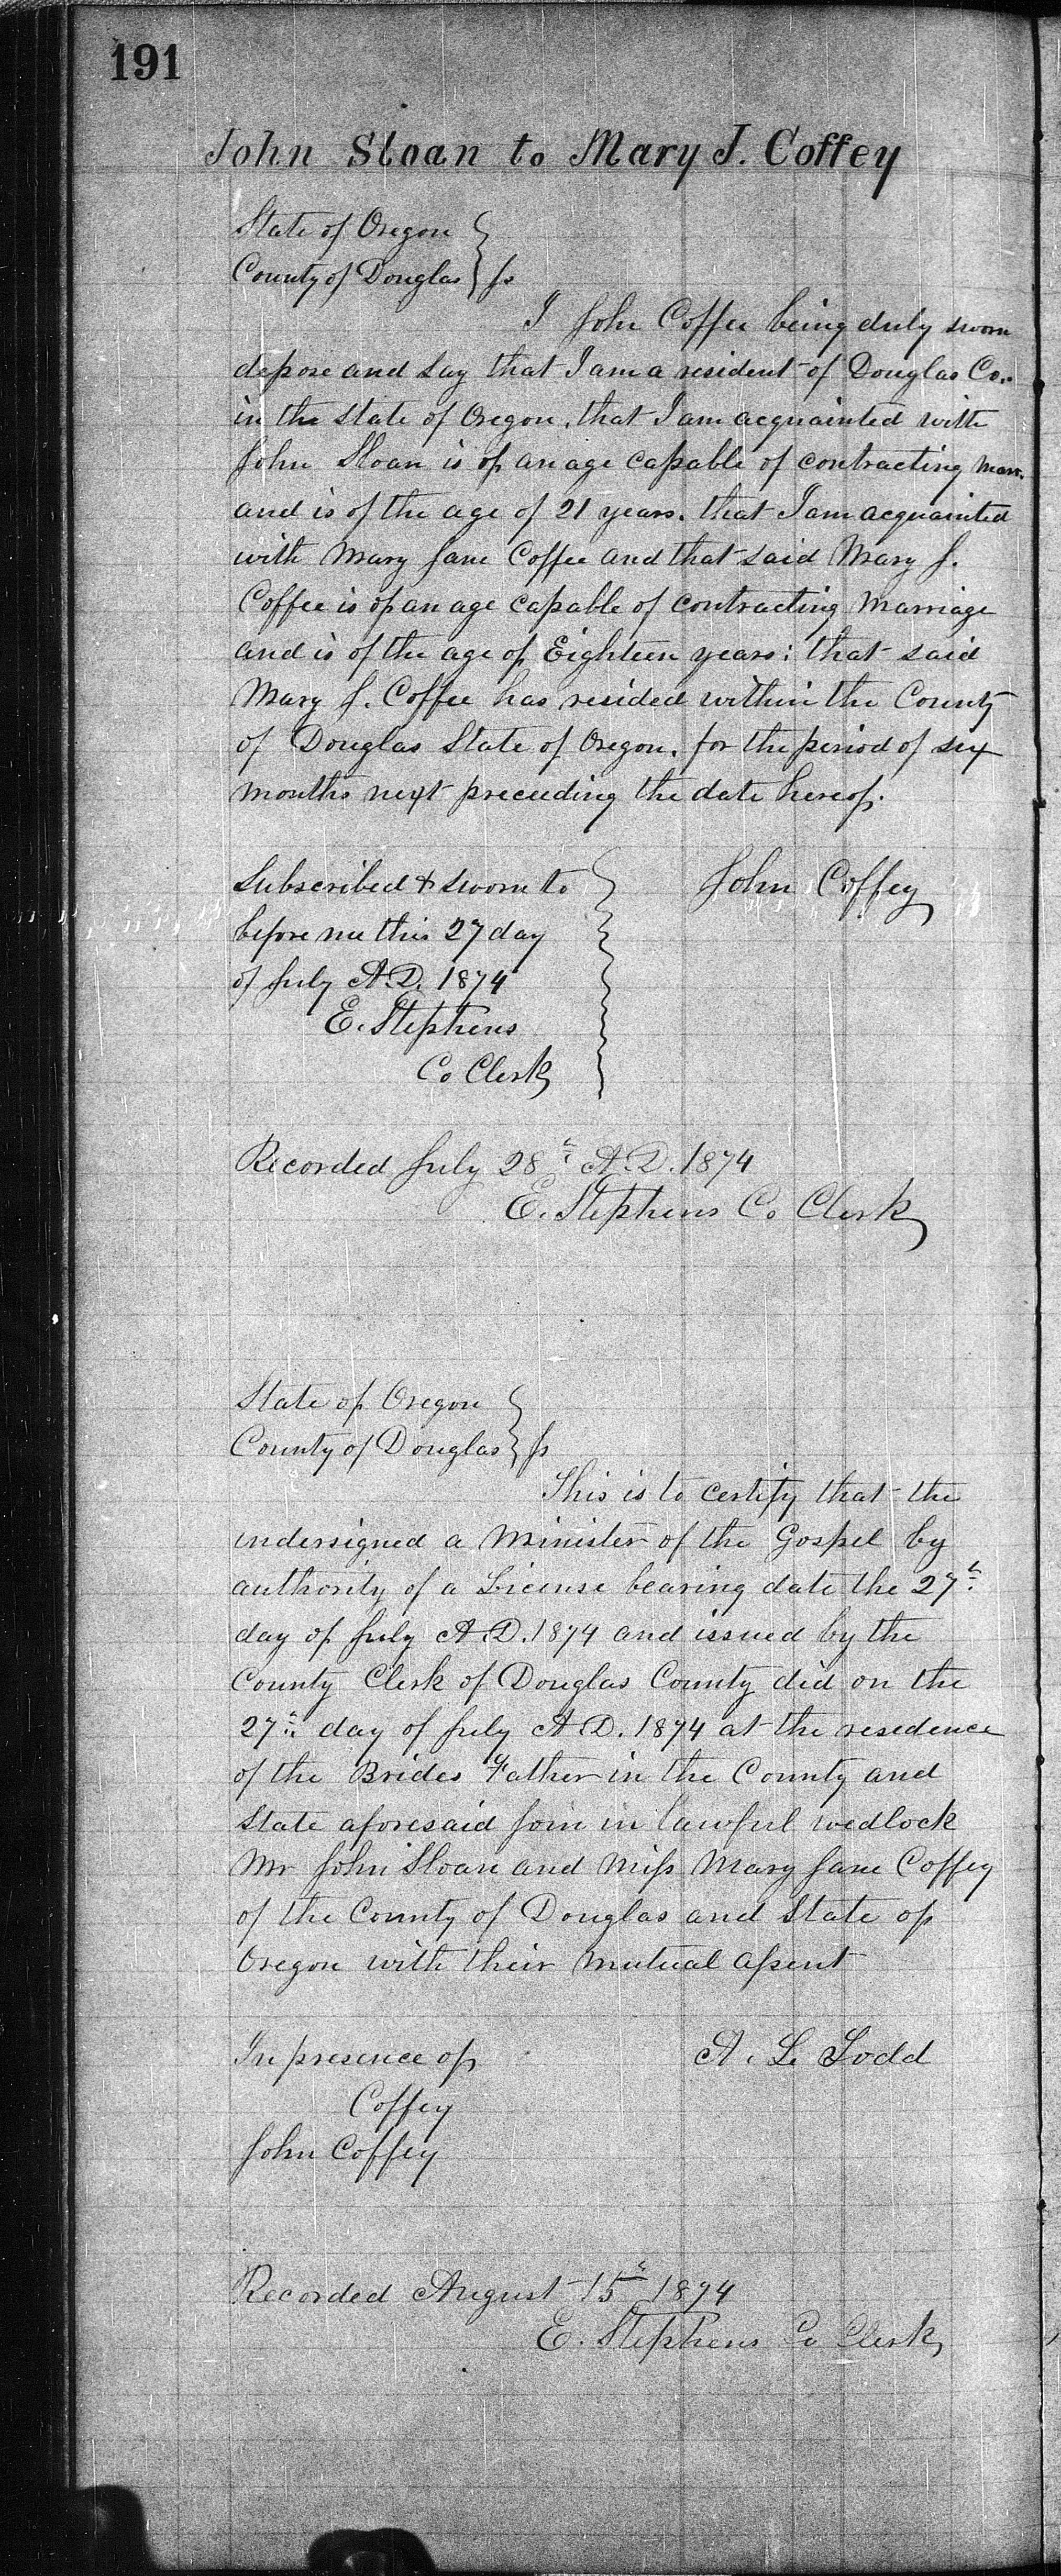 191
John Sloan to Mary J. Coffey
State of Oregon
County of Douglas } ss
I John Coffee being duly sworn
depose and say that I am a resident of Douglas Co.
in the state of Oregon, that I am acquainted with
John Sloan is of an age capable of contracting Marr.
and is of the age of 21 years. that I am acquainted
with Mary Jane Coffee and that said Mary J.
Coffee is of an age capable of contracting Marriage
and is of the age of Eighteen years; that said
Mary J. Coffee has resided within the County
of Douglas State of Oregon. for the period of six
months next preceeding the date hereof.
Subscribed & sworn to } John Coffey
before me this 27 day
of July A.D. 1874
E. Stephens
Co Clerk
Recorded July 28th A.D. 1874
E. Stephens Co Clerk
State of Oregon
County of Douglas } ss
This is to certify that the
undersigned a Minister of the Gospel by
authority of a License bearing date the 27th
day of July A.D. 1874 and issued by the
County Clerk of Douglas County did on the
27th day of July A.D. 1874 at the residence
of the Brides Father in the County and
State aforesaid join in lawful wedlock
Mr John Sloan and Miss Mary Jane Coffey
of the County of Douglas and State of
Oregon with their mutual assent
In presence of A. L. Todd
Coffey
John Coffey
Recorded August 15th 1874
E. Stephens Co Clerk